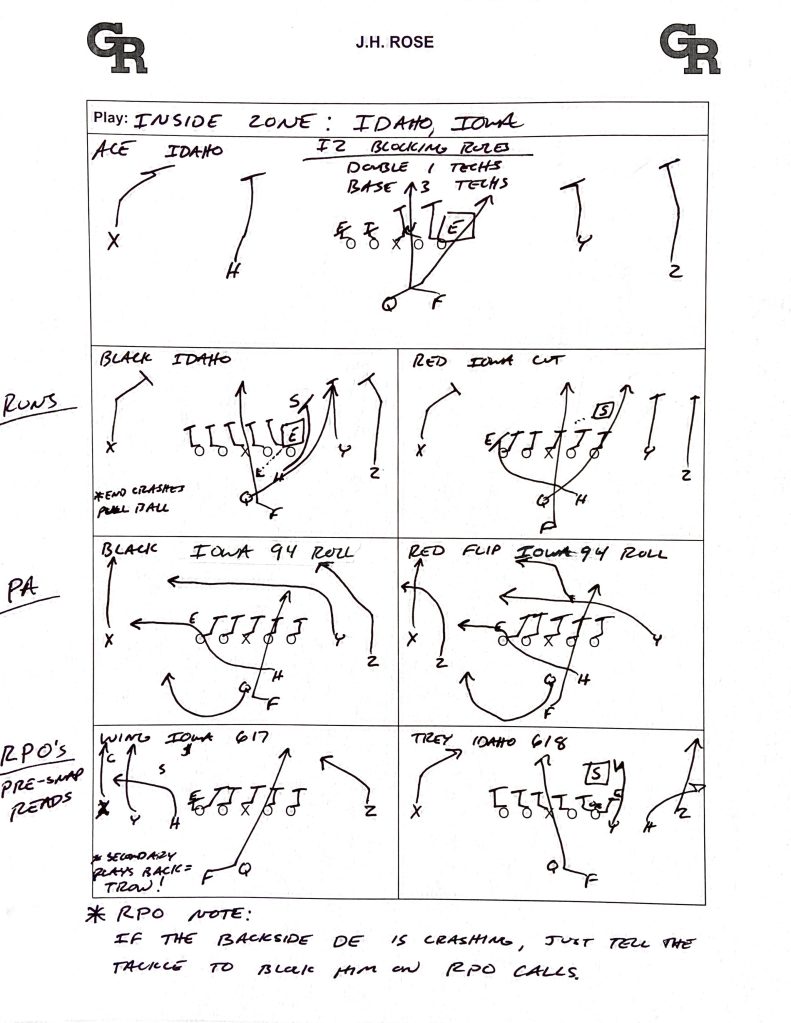 GR
J.H. ROSE
GR
Play: INSIDE ZONE: IDAHO, IOWA
ACE IDAHO
IZ BLOCKING RULES
DOUBLE 1 TECHS
BASE 3 TECHS
E I N E
X H Y Z
Q F
RUNS
BLACK IDAHO
S
E
X E H Y Z
Q F
*END CRASHES
PULL BALL
RED IOWA CUT
S
E
X Y Z
Q H
F
PA
BLACK IOWA 94 ROLL
E
X Y Z
H
Q F
RED FLIP IOWA 94 ROLL
E
X Z Y
Q H
F
RPO'S
PRE-SNAP
READS
WING IOWA 617
C S
E
X Y H Z
F Q
* SECONDARY
PLAYS BACK =
TROW!
TREY IDAHO 618
S
X Y H Z
Q F
* RPO NOTE:
IF THE BACKSIDE DE IS CRASHING, JUST TELL THE
TACKLE TO BLOCK HIM ON RPO CALLS.